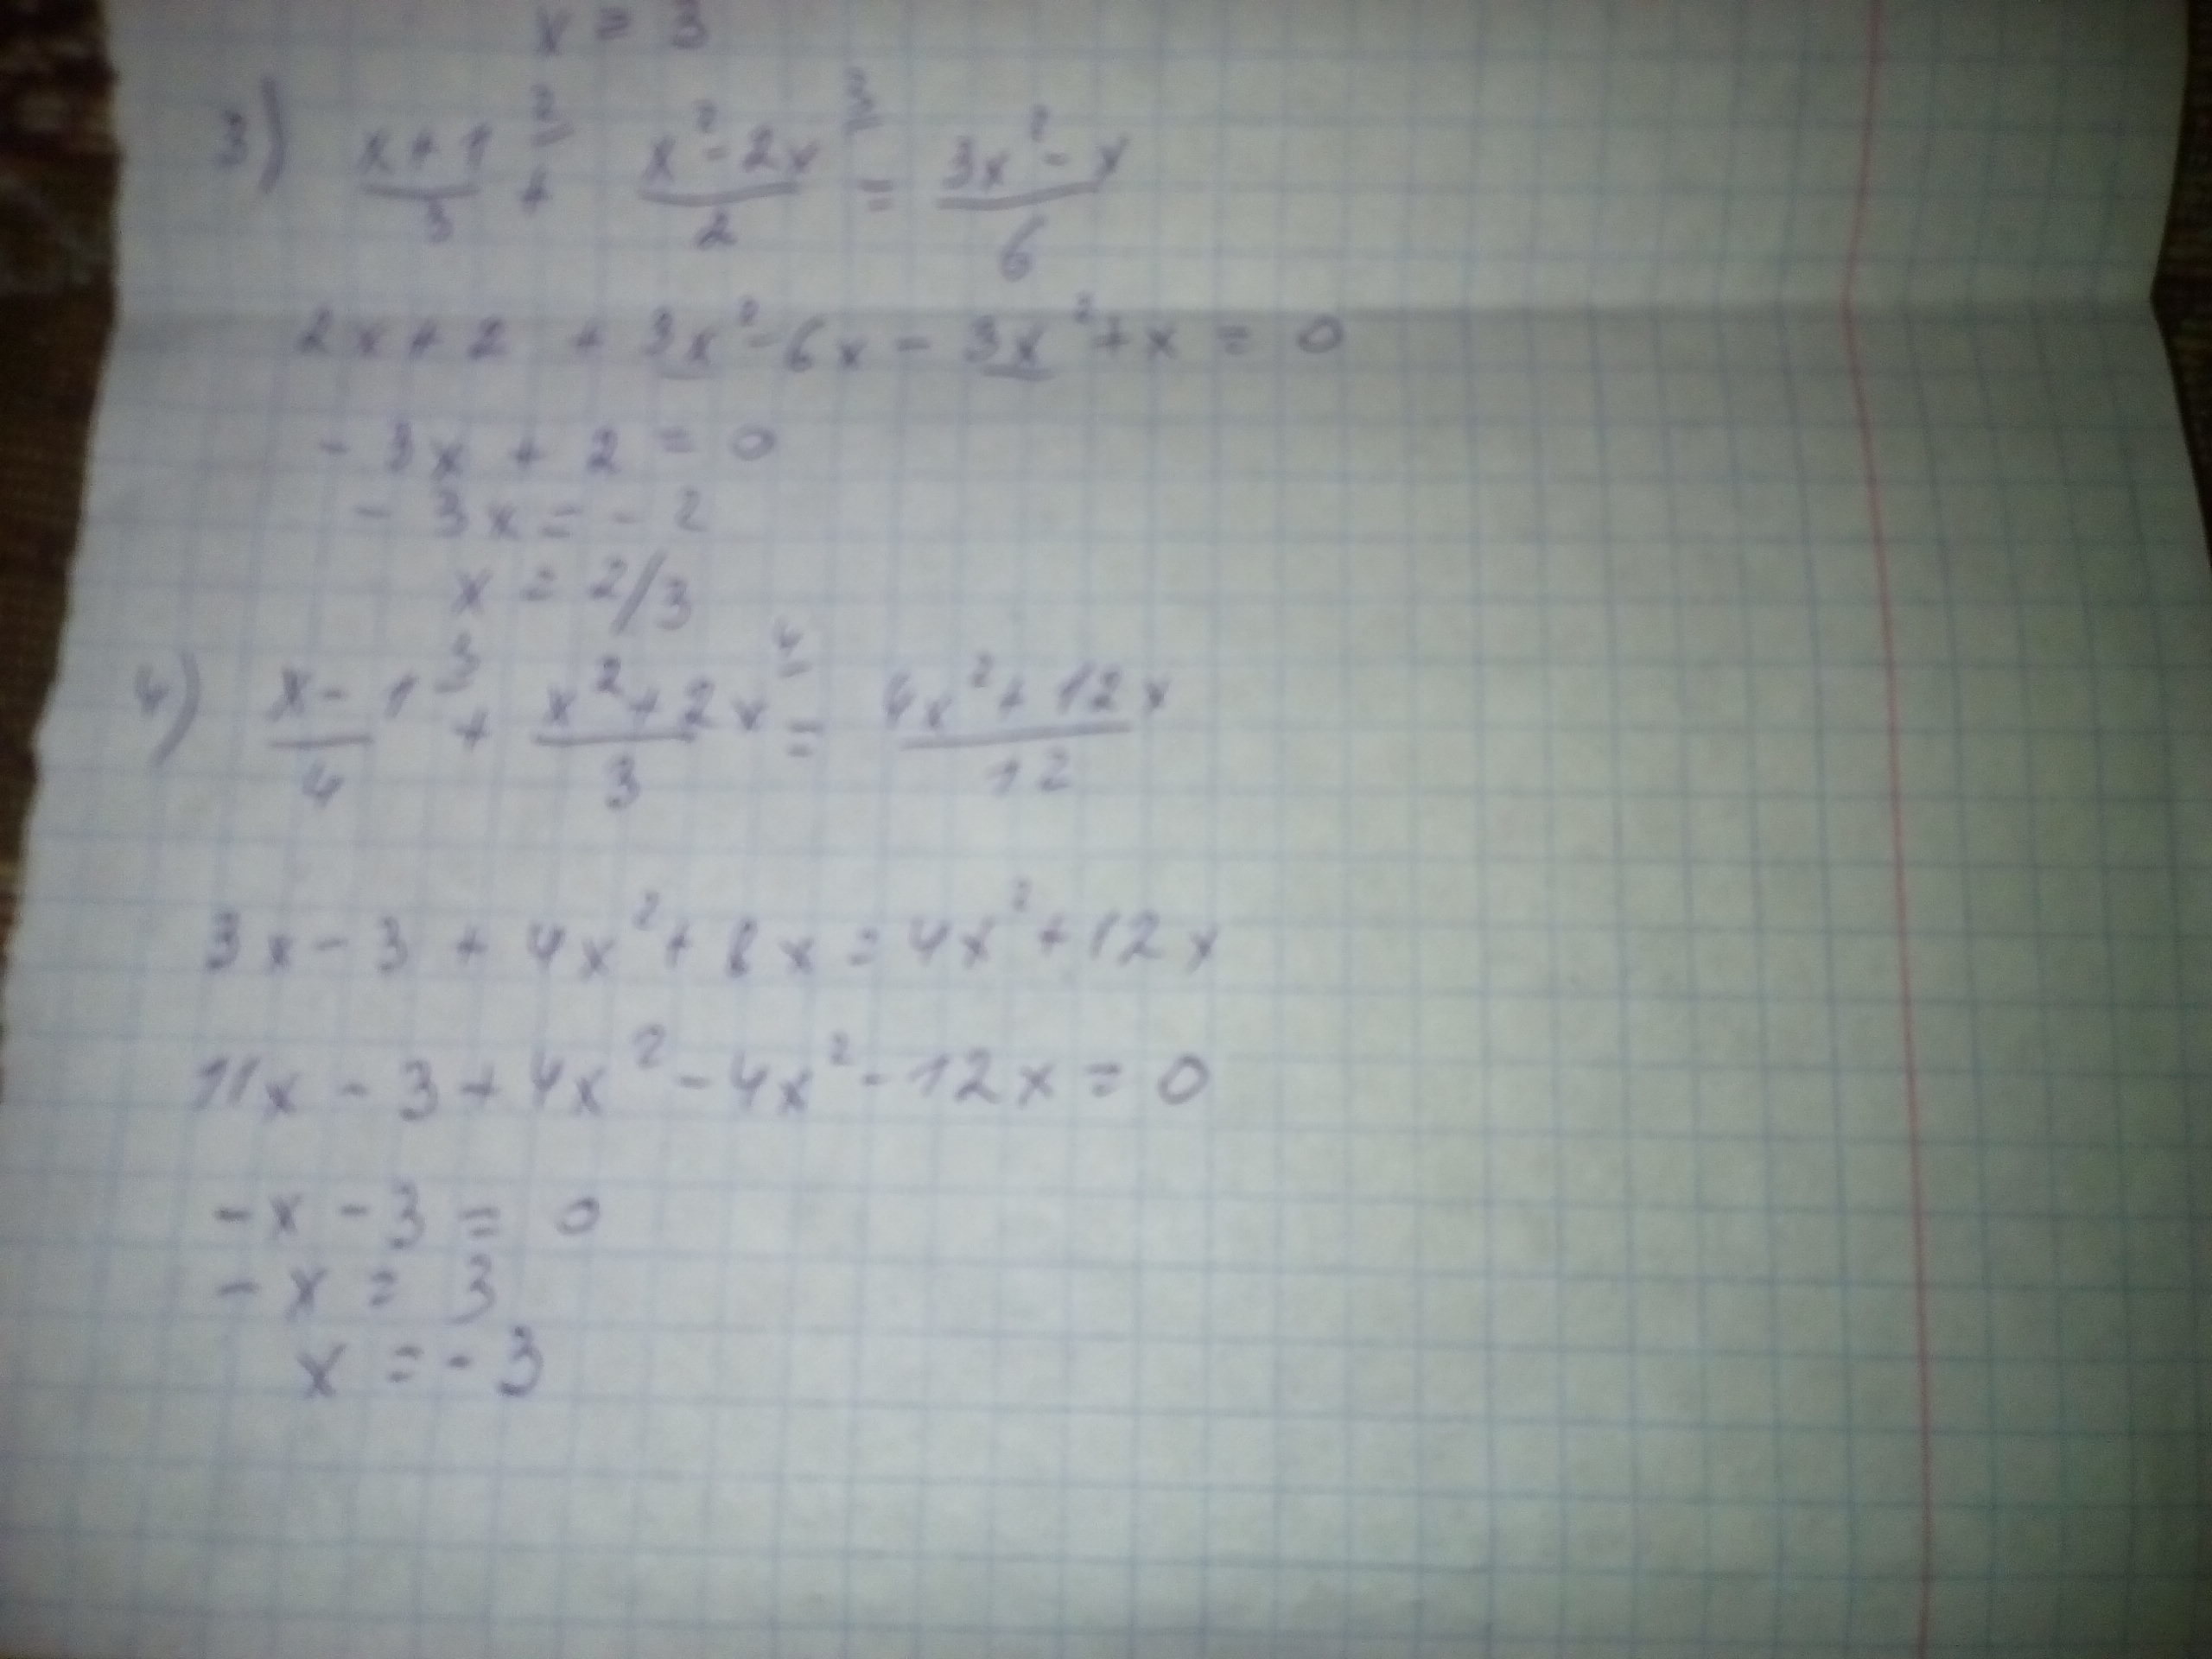 x = 3
3) (x+1)/3 ² + (x²-2x)/2 ³ = (3x²-x)/6
2x+2 + 3x²-6x - 3x²+x = 0
-3x + 2 = 0
-3x = -2
x = 2/3
4) (x-1)/4 ³ + (x²+2x)/3 ⁴ = (4x²+12x)/12
3x-3+4x²+8x=4x²+12x
11x-3+4x²-4x²-12x=0
-x-3=0
-x=3
x=-3